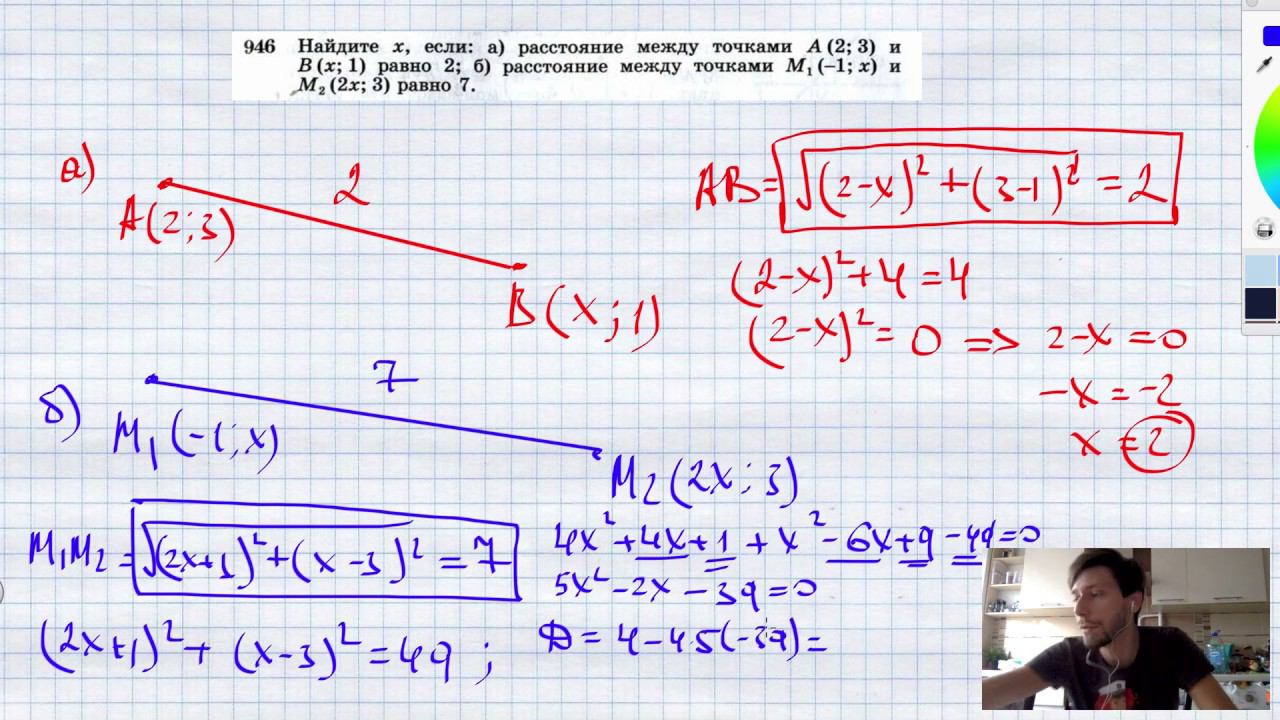 946 Найдите x, если: а) расстояние между точками A (2; 3) и
B (x; 1) равно 2; б) расстояние между точками M₁ (−1; x) и
M₂ (2x; 3) равно 7.
а)
2
A(2;3)
B(x;1)
AB=√(2-x)²+(3-1)² = 2
(2-x)²+4=4
(2-x)²=0 => 2-x=0
-x=-2
x=2
б)
7
M₁(-1;x)
M₂(2x;3)
M₁M₂=√(2x+1)²+(x-3)² = 7
(2x+1)²+(x-3)²=49;
4x²+4x+1+x²-6x+9-49=0
5x²-2x-39=0
D=4-4·5(-39)=